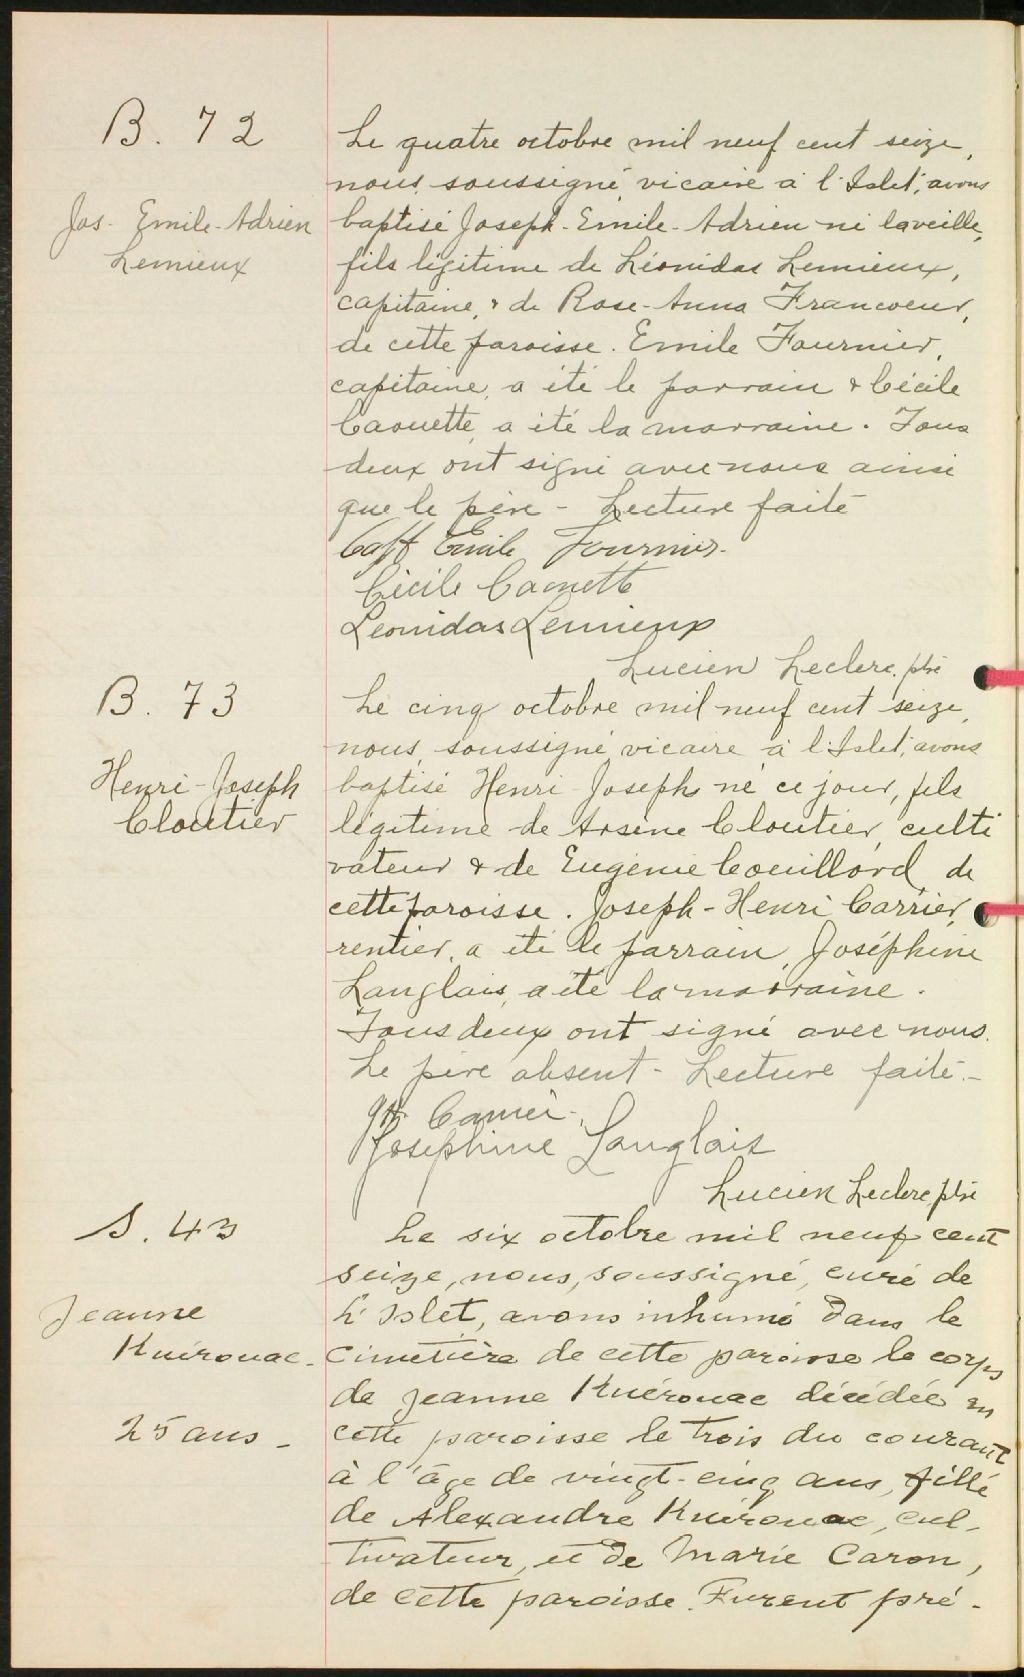 B. 72
Jos. Emile-Adrien
Lemieux
Le quatre octobre mil neuf cent seize,
nous, soussigné, vicaire à l'Islet, avons
baptisé Joseph-Emile-Adrien né la veille,
fils légitime de Léonidas Lemieux,
capitaine, & de Rose-Anna Francoeur,
de cette paroisse. Emile Fournier,
capitaine, a été le parrain & Cécile
Caouette, a été la marraine. Tous
deux ont signé avec nous ainsi
que le père - Lecture faite
Capt Emile Fournier
Cécile Caouette
Leonidas Lemieux
Lucien Leclerc, ptre
B. 73
Henri-Joseph
Cloutier
Le cinq octobre mil neuf cent seize,
nous, soussigné, vicaire à l'Islet, avons
baptisé Henri-Joseph né ce jour, fils
légitime de Arsène Cloutier, culti
vateur & de Eugénie Couillard, de
cette paroisse. Joseph-Henri Carrier,
rentier, a été le parrain, Joséphine
Langlais, a été la marraine.
Tous deux ont signé avec nous.
Le père absent - Lecture faite -
JH Carrier
Josephine Langlais
Lucien Leclerc, ptre
S. 43
Jeanne
Kuérouac-
25 ans -
Le six octobre mil neuf cent
seize, nous, soussigné, curé de
L'Islet, avons inhumé dans le
cimetière de cette paroisse le corps
de Jeanne Kuérouac décédée en
cette paroisse le trois du courant
à l'âge de vingt-cinq ans, fille
de Alexandre Kuérouac, cul-
tivateur, et de Marie Caron,
de cette paroisse. Furent pré-